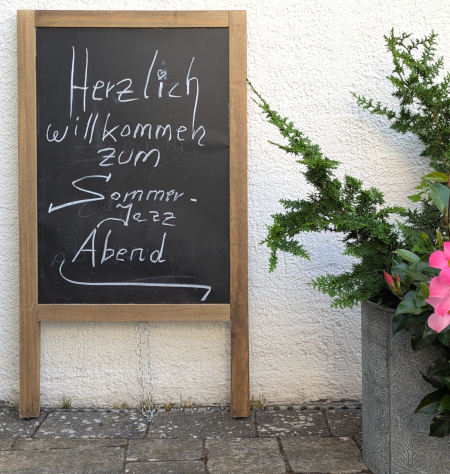 Herzlich
willkommen
zum
Sommer-
Jazz
Abend